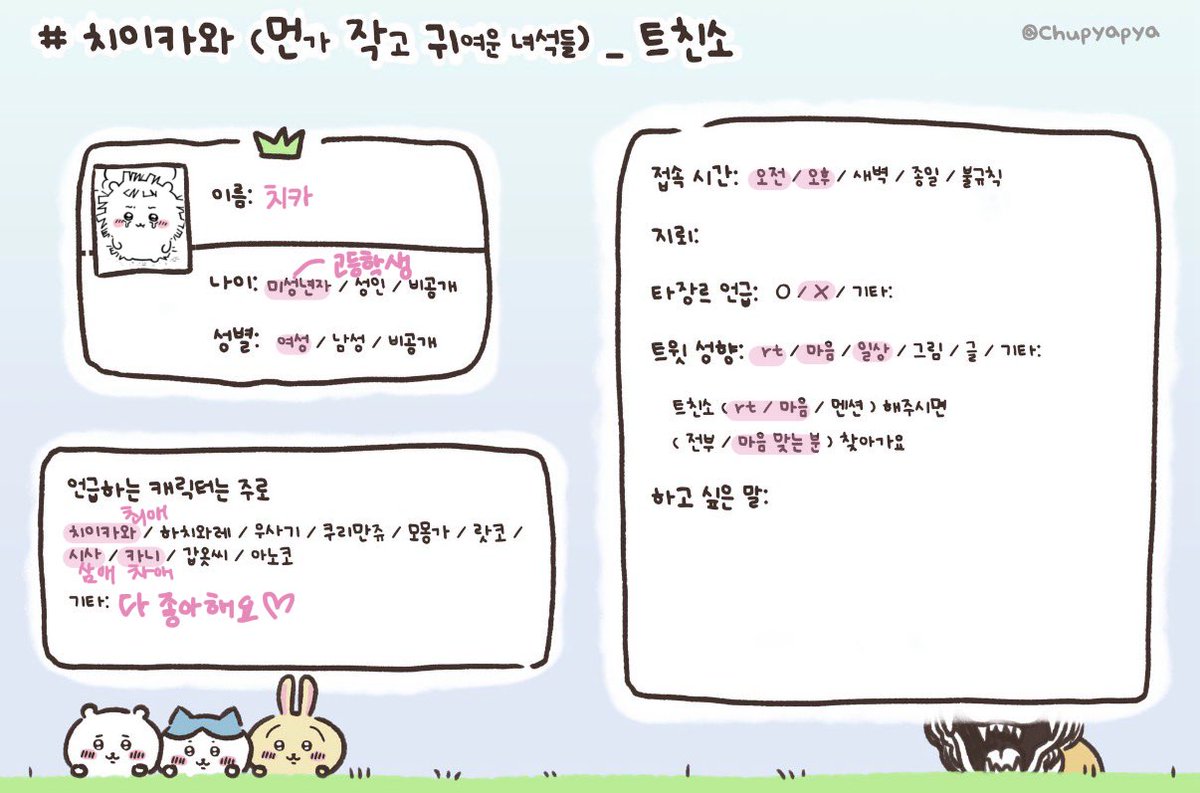 # 치이카와 (먼가 작고 귀여운 녀석들) _ 트친소
@Chupyapya
이름: 치카
고등학생
나이: 미성년자 / 성인 / 비공개
성별: 여성 / 남성 / 비공개
언급하는 캐릭터는 주로
최애
치이카와 / 하치와레 / 우사기 / 쿠리만쥬 / 모몽가 / 랏코 /
시사 / 카니 / 갑옷씨 / 아노코
삼애 차애
기타: 다 좋아해요♡
접속 시간: 오전 / 오후 / 새벽 / 종일 / 불규칙
지뢰:
타장르 언급: O / X / 기타:
트윗 성향: rt / 마음 / 일상 / 그림 / 글 / 기타:
트친소 ( rt / 마음 / 멘션 ) 해주시면
( 전부 / 마음 맞는 분 ) 찾아가요
하고 싶은 말: